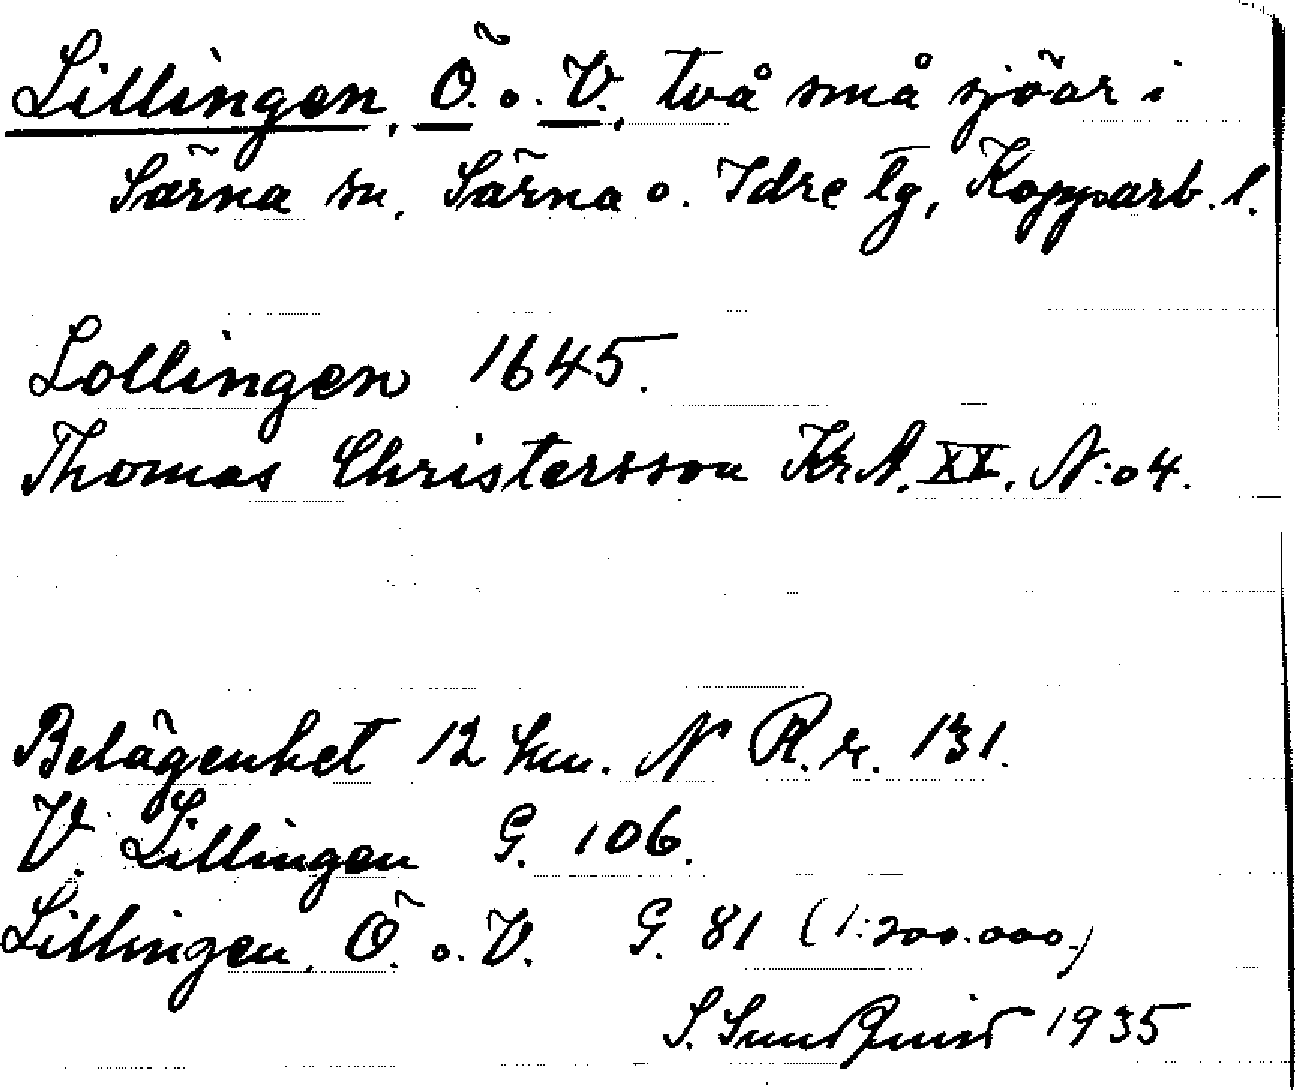 Lillingen, Ö. o. V., två små sjöar i
Särna sn, Särna o. Idre tg, Kopparb. l.
Lollingen 1645.
Thomas Christersson Kr.A. XV. N:o 4.
Belägenhet 12 km. N R.r. 131.
V. Lillingen G. 106.
Lillingen, Ö. o. V. G. 81 (1:200.000.)
S. Sundquist 1935